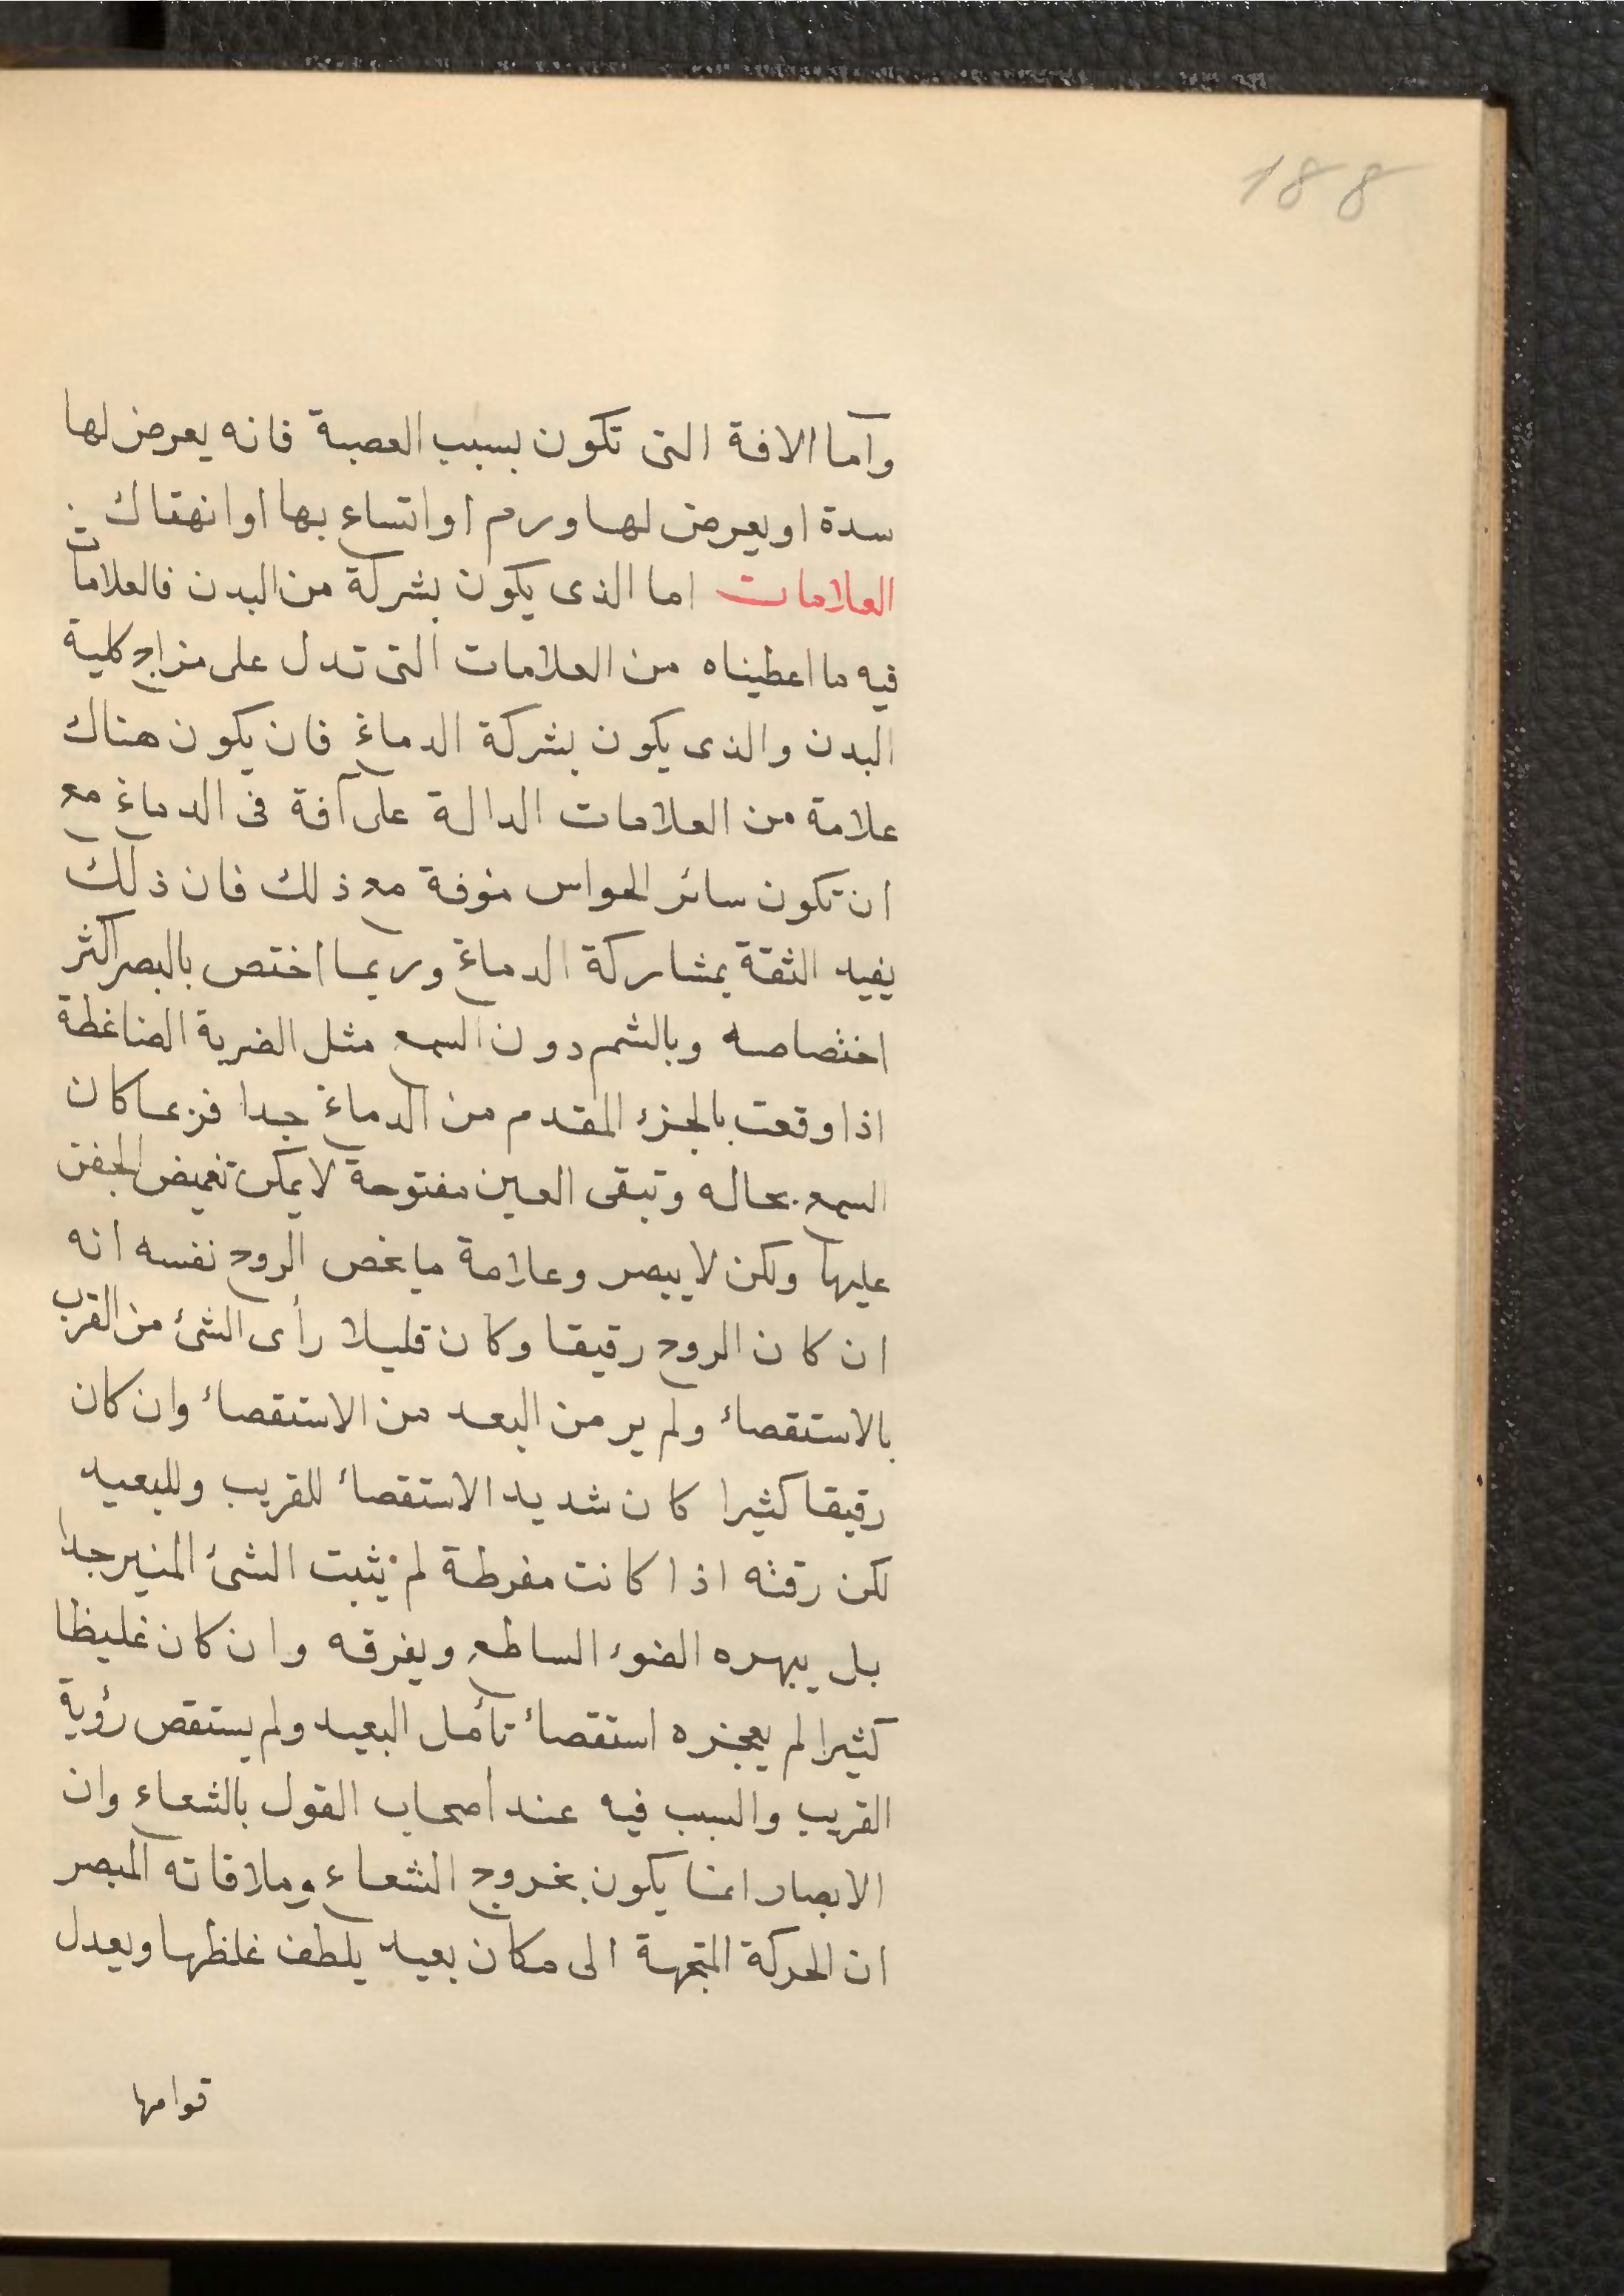 188
وأما الافة التى تكون بسبب العصبة فانه يعرض لها
سدة او يعرض لها ورم او اتساع بها او انهتاك
العلامات اما الذى يكون بشركة من البدن فالعلامات
فيه ما اعطيناه من العلامات التى تدل على مزاج كلية
البدن والذى يكون بشركة الدماغ فان يكون هناك
علامة من العلامات الدالة على آفة فى الدماغ مع
ان تكون سائر الحواس مؤفة مع ذلك فان ذلك
يفيد الثقة بمشاركة الدماغ وربما اختص بالبصر اكثر
اختصاصه وبالشم دون السمع مثل الضربة الضاغطة
اذا وقعت بالجزء المقدم من الدماغ جدا فربما كان
السمع بحاله وتبقى العين مفتوحة لا يمكن تغميض الجفن
عليها ولكن لا يبصر وعلامة ما يخص الروح نفسه انه
ان كان الروح رقيقا وكان قليلا رأى الشئ من القرب
بالاستقصاء ولم ير من البعد من الاستقصاء وان كان
رقيقا كثيرا كان شديد الاستقصاء للقريب وللبعيد
لكن رقته اذا كانت مفرطة لم يثبت الشئ المنير جدا
بل يبهره الضوء الساطع ويفرقه وان كان غليظا
كثيرا لم يعجزه استقصاء تأمل البعيد ولم يستقص رؤية
القريب والسبب فيه عند أصحاب القول بالشعاع وان
الابصار انما يكون بخروج الشعاع وملاقاته المبصر
ان الحركة المتجهة الى مكان بعيد يلطف غلظها ويعدل
قوامها